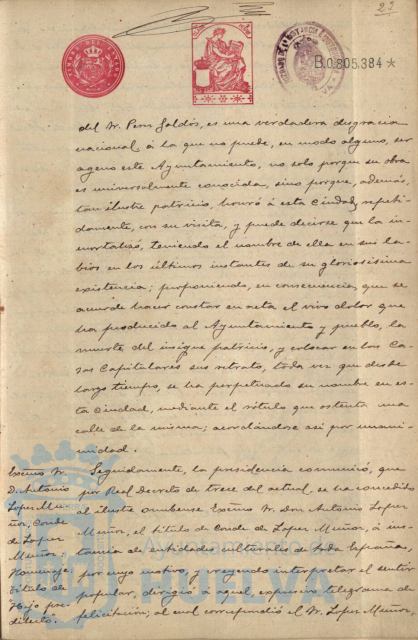 22
B.0.805.384 *
del Sr. Perez Galdós, es una verdadera desgracia
nacional á la que no puede, en modo alguno, ser
ageno este Ayuntamiento, no solo porque su obra
es universalmente conocida, sino porque, además,
tan ilustre patricio, honró á esta Ciudad, repeti-
damente, con su visita, y puede decirse que la in-
mortalizó, teniendo el nombre de ella en sus la-
bios en los últimos instantes de su gloriosísima
existencia; proponiendo, en consecuencia, que se
acuerde hacer constar en acta el vivo dolor que
ha producido al Ayuntamiento y pueblo, la
muerte del insigne patricio, y colocar en las Ca-
sas Capitulares su retrato, toda vez que desde
largo tiempo, se ha perpetuado su nombre en es-
ta Ciudad, mediante el rótulo que ostenta una
calle de la misma; acordándose así por unani-
midad.
Excmo Sr.
D. Antonio
Lopez Mu-
ñoz, Conde
de Lopez
Muñoz.
Homenaje
Título de
Hijo pre-
dilecto.
Seguidamente, la presidencia comunicó, que
por Real Decreto de trece del actual, se ha concedido
al ilustre onubense Excmo Sr. don Antonio Lopez
Muñoz, el título de Conde de Lopez Muñoz, á ins-
tancia de entidades culturales de toda España,
por cuyo motivo, y creyendo interpretar el sentir
popular, dirigió á aquel, expresivo telegrama de
felicitación; al cual correspondió el Sr. Lopez Muñoz,
Ayuntamiento de
HUELVA